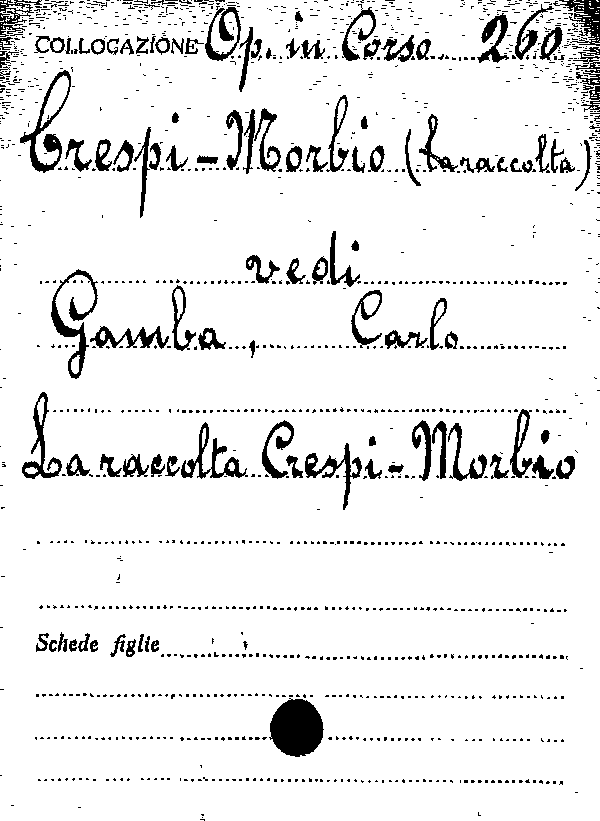 COLLOCAZIONE Op. in Corso 260
Crespi-Morbio (La raccolta)
vedi
Gamba, Carlo
La raccolta Crespi-Morbio
Schede figlie